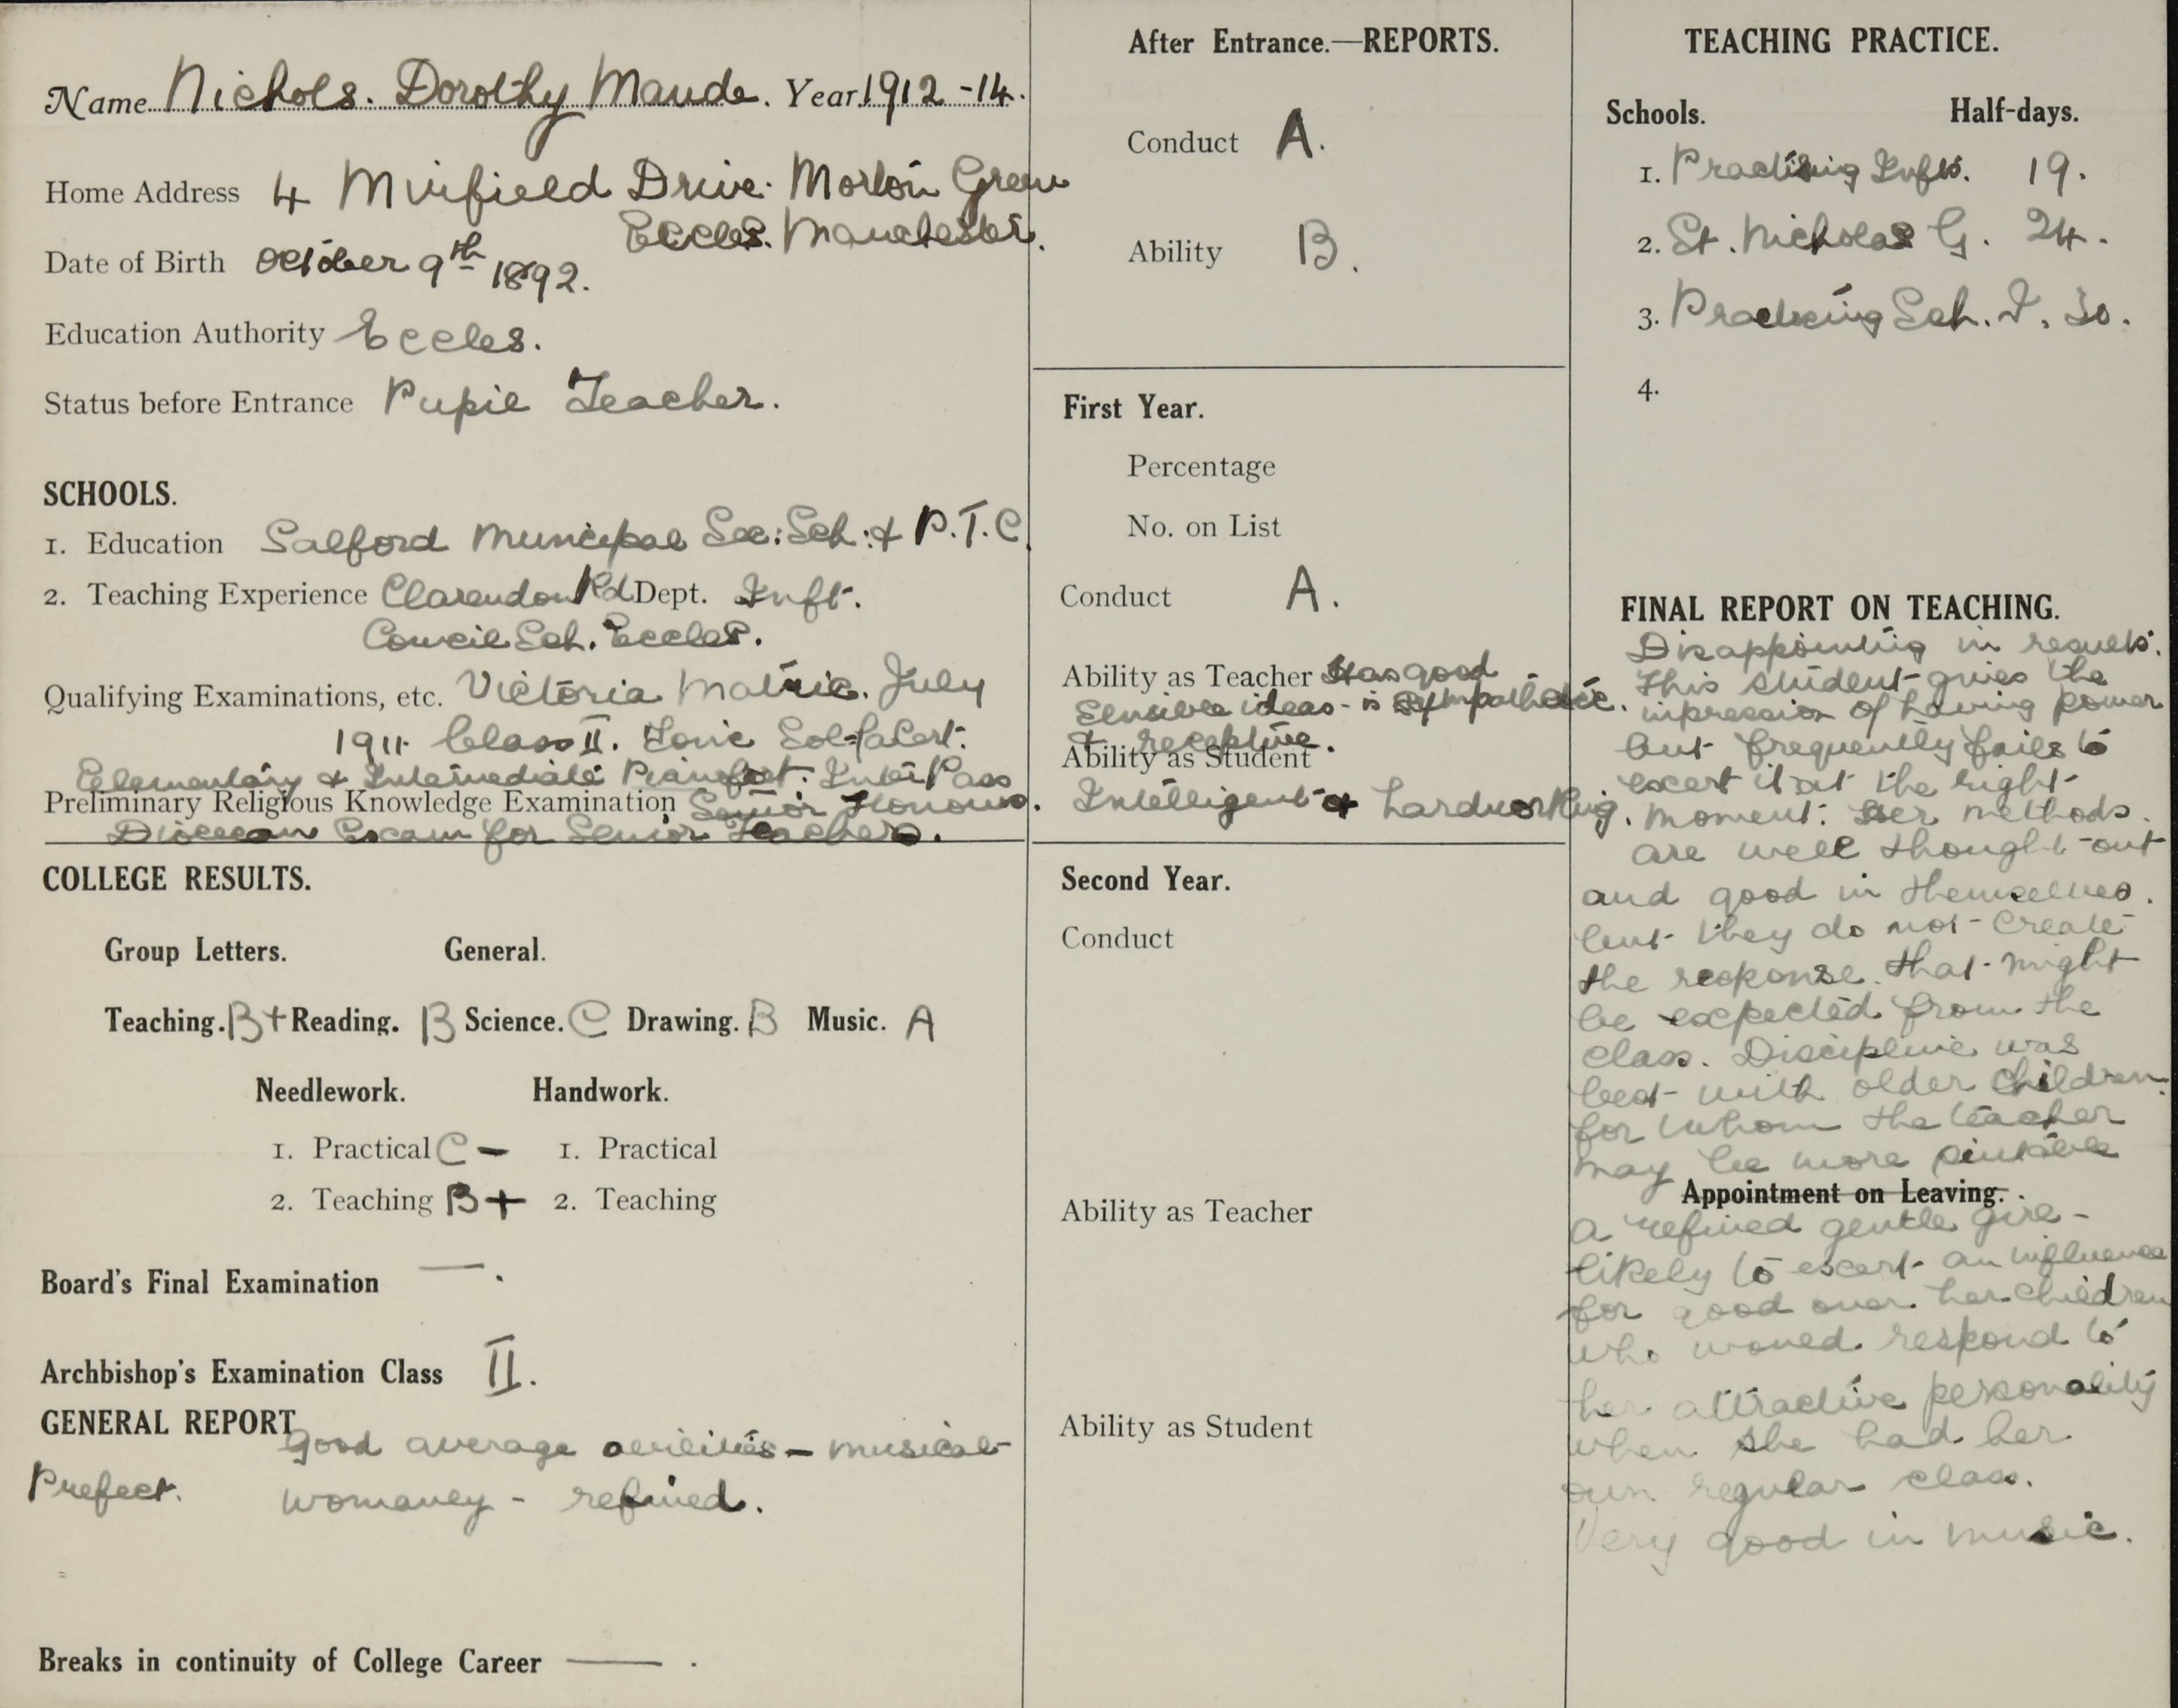 Name Nichols. Dorothy Maude. Year 1912-14.
Home Address 4 Muirfield Drive. Morton Green
Eccles. Manchester.
Date of Birth October 9th 1892.
Education Authority Eccles.
Status before Entrance Pupil Teacher.
SCHOOLS.
1. Education Salford Municipal Sec: Sch: & P.T.C.
2. Teaching Experience Clarendon Rd Dept. Inft.
Council Sch. Eccles.
Qualifying Examinations, etc. Victoria Matric. July
1911. Class II. Tonic Sol-fa Cert.
Elementary & Intermediate Pianofort. Inter Pass
Preliminary Religious Knowledge Examination Senior Honours.
Diocesan Exam for Senior Teachers.
COLLEGE RESULTS.
Group Letters. General.
Teaching. B+ Reading. B Science. C Drawing. B Music. A
Needlework. Handwork.
1. Practical C- 1. Practical
2. Teaching B+ 2. Teaching
Board's Final Examination — .
Archbishop's Examination Class II.
GENERAL REPORT
Good average abilities - musical -
Prefect. womanly - refined.
Breaks in continuity of College Career — .
After Entrance.—REPORTS.
Conduct A.
Ability B.
First Year.
Percentage
No. on List
Conduct A.
Ability as Teacher Has good
sensible ideas - is sympathetic.
& receptive.
Ability as Student
Intelligent & hardworking.
Second Year.
Conduct
Ability as Teacher
Ability as Student
TEACHING PRACTICE.
Schools. Half-days.
1. Practising Infts. 19.
2. St. Nicholas G. 24.
3. Practising Sch. I. 30.
4.
FINAL REPORT ON TEACHING.
Disappointing in results.
This student gives the
impression of having power
but frequently fails to
exert it at the right
moment. Her methods
are well thought-out
and good in themselves.
but they do not create
the response that might
be expected from the
class. Discipline was
best with older children.
for whom the teacher
may be more suitable
Appointment on Leaving.
A refined gentle girl -
likely to exert an influence
for good over her children
who would respond to
her attractive personality
when she had her
own regular class.
Very good in music.